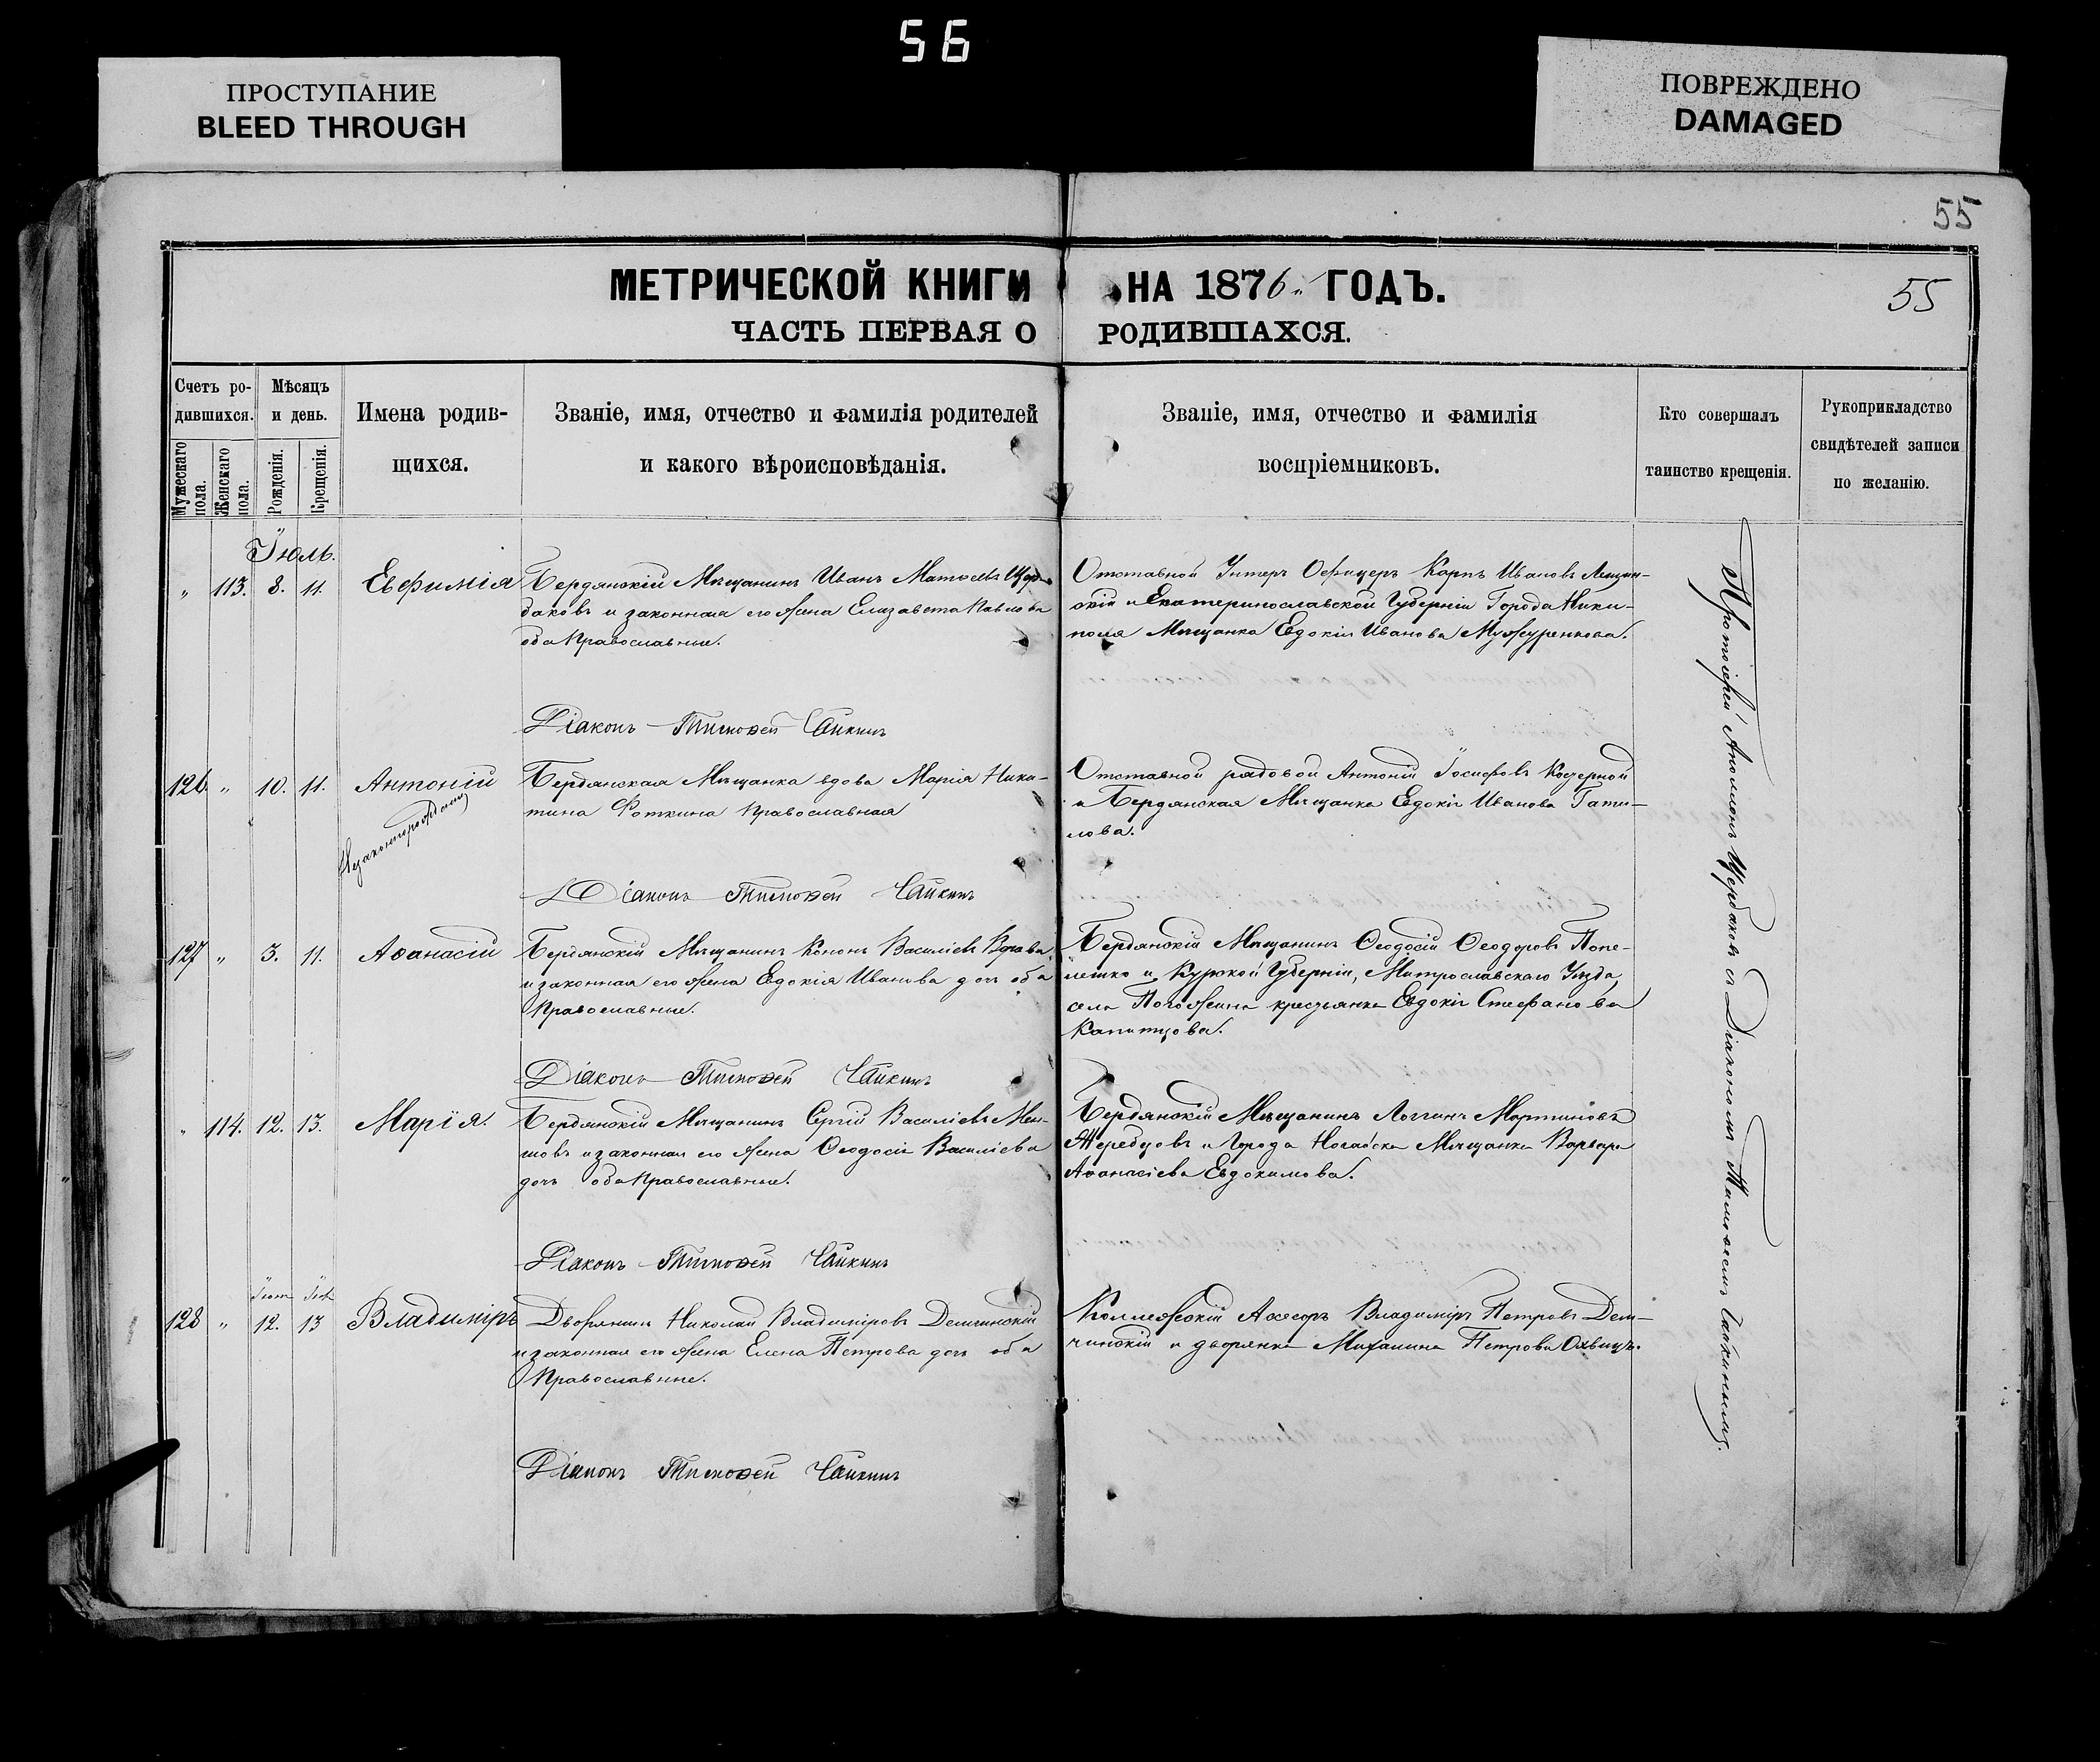 56
ПРОСТУПАНИЕ
BLEED THROUGH
ПОВРЕЖДЕНО
DAMAGED
55
МЕТРИЧЕСКОЙ КНИГИ НА 1876 ГОДЪ.
55
ЧАСТЬ ПЕРВАЯ О РОДИВШАХСЯ.
Счетъ ро-
дившихся.
Мужескаго пола.
Женскаго пола.
Мѣсяцъ
и день.
Рожденія.
Крещенія.
Имена родив-
щихся.
Званіе, имя, отчество и фамилія родителей
и какого вѣроисповѣданія.
Званіе, имя, отчество и фамилія
воспріемниковъ.
Кто совершалъ
таинство крещенія.
Рукоприкладство
свидѣтелей записи
по желанію.
Іюль.
" 113. 8. 11. Евфимія
Бердянскій Мѣщанинъ Иванъ Матѳеевъ Щер-
баковъ и законная его жена Елизавета Павлова
оба Православные.
Отставной Унтеръ Офицеръ Карпъ Ивановъ
скій и Екатеринославской Губерніи Города Нико-
поля Мѣщанка Евдокія Иванова Мужуренкова.
Діаконъ Тимоѳей Чайкинъ
126 " 10. 11. Антоній
Незаконнорожденный
Бердянская Мѣщанка вдова Марія Ники-
тина Фоткина Православная
Отставной рядовой Антоній Іосифовъ
и Бердянская Мѣщанка Евдокія Иванова Гати-
лова.
Діаконъ Тимоѳей Чайкинъ
127 " 3. 11. Аѳанасій
Бердянскій Мѣщанинъ Кононъ Василіевъ
и законная его жена Евдокія Иванова дочь оба
Православные.
Бердянскій Мѣщанинъ Ѳеодосій Ѳеодоровъ Попе-
лешко и Курской Губерніи, Уѣзда,
села Погожина крестьянка Евдокія Стефанова
Капитцова.
Діаконъ Тимоѳей Чайкинъ
" 114. 12. 13. Марія.
Бердянскій Мѣщанинъ Сергій Василіевъ
и законная его жена Ѳеодосія Василіева
дочь оба Православные.
Бердянскій Мѣщанинъ Логгинъ Мартиновъ
Жеребцовъ и Города Ногайска Мѣщанка Варвара
Аѳанасіева Евдокимова.
Діаконъ Тимоѳей Чайкинъ
128 " 12. 13 Владиміръ
Дворянинъ Николай Владиміровъ Демчинскій
и законная его жена Елена Петрова дочь оба
Православные.
Коллежскій Ассесоръ Владиміръ Петровъ Дем-
чинскій и дворянка Михалина Петрова
Діаконъ Тимоѳей Чайкинъ
Протоіерей Аполлонъ Щербаковъ съ Діакономъ Тимоѳеемъ Чайкинымъ.